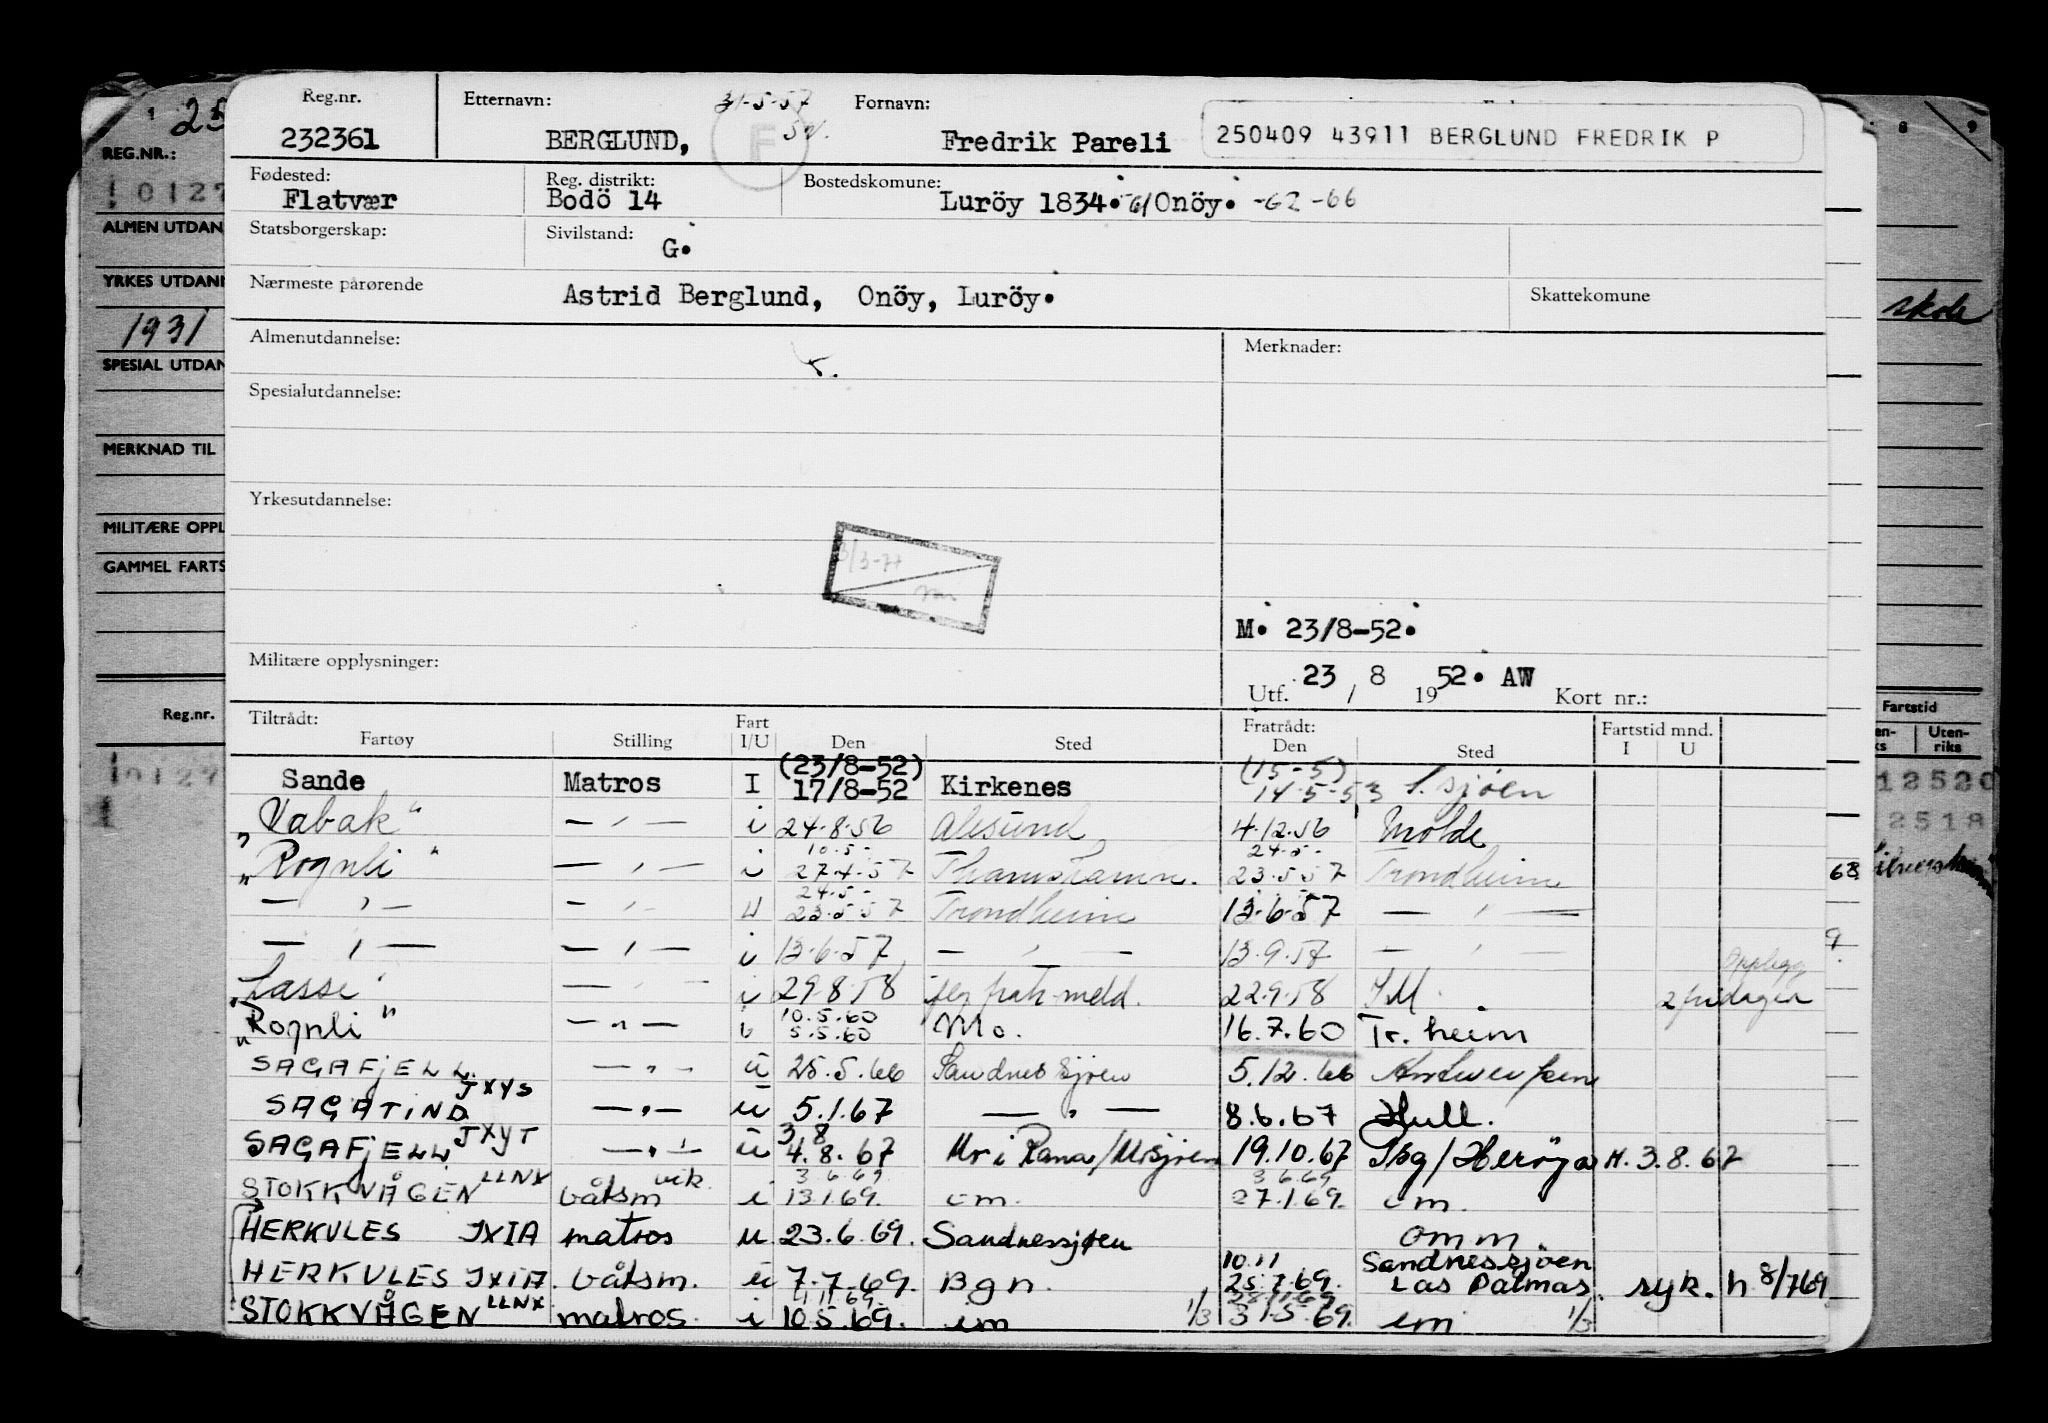 Reg.nr. Etternavn: 31-5-57 Fornavn:
232361 BERGLUND, F Fredrik Pareli 250409 43911 BERGLUND FREDRIK P
Fødested: Reg. distrikt: Bostedskomune:
Flatvær Bodö 14 Luröy 1834. 61 Onöy. -62 -66
Statsborgerskap: Sivilstand: G.
Nærmeste pårørende Astrid Berglund, Onöy, Luröy. Skattekomune
Almenutdannelse: Merknader:
Spesialutdannelse:
Yrkesutdannelse:
3/3-77
M. 23/8-52.
Militære opplysninger:
Utf. 23 / 8 19 52. AW Kort nr.:
Tiltrådt: Fart Fratrådt: Fartstid mnd.
Fartøy Stilling I/U Den Sted Den Sted I U
(23/8-52) (15-5)
Sande Matros I 17/8-52 Kirkenes 14-5-53 S.sjøen
"Vabak" — " — i 24-8-56 Ålesund 4.12.56 Molde
10.5- 24-5-
"Rognli" — " — i 27-4-57 Thamshamn. 23.5.57 Trondheim
24-5-
— " — — " — U 23.5.57 Trondheim 13-6-57 — " —
— " — — " — i 13-6-57 — " — 13.9.57 — " —
Opplegg
"Lasse" — " — i 29-8-58 jfr fratr.meld. 22.9.58 IM 2 fridager
10.5.60
"Rognli" — " — i 5.5.60 Mo. 16.7.60 Tr.heim
SAGAFJELL — " — u 25.5.66 Sandnessjøen 5.12.66 Antwerpen
JXYS
SAGATIND — " — u 5.1.67 — " — 8.6.67 Hull.
3 8
SAGAFJELL JXYT — " — u 4.8.67 Mo i Rana/Msjøen 19.10.67 Pbg/Herøya H. 3.8.67
3.6.69 3.6.69
STOKKVÅGEN LLNX båtsm vik. i 13.1.69. em. 27.1.69. em.
HERKULES JXIA matros u 23.6.69. Sandnessjøen omm.
10.11 Sandnessjøen
HERKULES JXIA båtsm. u 7.7.69. Bgn. 25.7.69. Las Palmas. syk. h 8/7 69.
11.11.69. 28.11.69
STOKKVÅGEN LLNX matros. i 10.5.69. em 1/3 31.5.69. em 1/3
25
REG.NR.:
10127
ALMEN UTDAN
YRKES UTDAN
1931
SPESIAL UTDAN
MERKNAD TIL
MILITÆRE OPPL
GAMMEL FARTS
Reg.nr.
10127
8 9
skole
Fartstid
Uten-
riks
12520
2518
68